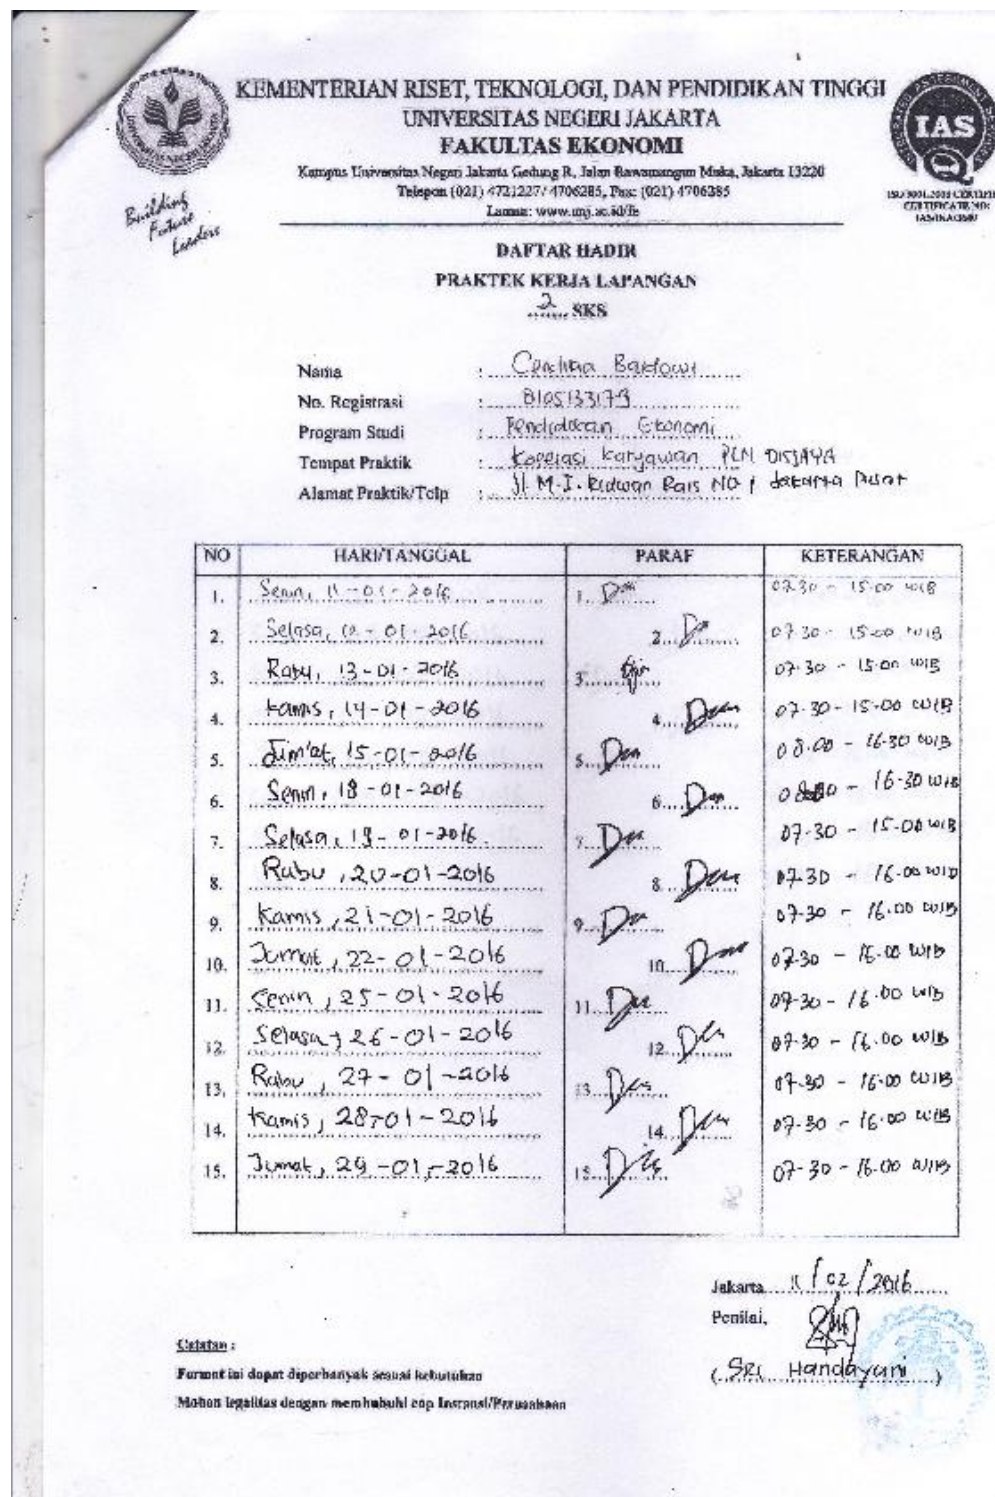 KEMENTERIAN RISET, TEKNOLOGI, DAN PENDIDIKAN TINGGI
UNIVERSITAS NEGERI JAKARTA
FAKULTAS EKONOMI
Kampus Universitas Negeri Jakarta Gedung R, Jalan Rawamangun Muka, Jakarta 13220
Telepon (021) 4721227/ 4706285, Fax: (021) 4706285
Laman: www.unj.ac.id/fe
Building
Future
Leaders
IAS
DAFTAR HADIR
PRAKTEK KERJA LAPANGAN
2 SKS
Nama :
No. Registrasi : 8105133179
Program Studi : Pendidikan Ekonomi
Tempat Praktik : Koperasi Karyawan PLN DISJAYA
Alamat Praktik/Telp : Jl. M.I. Ridwan Rais NO 1 Jakarta Pusat
NO HARI/TANGGAL PARAF KETERANGAN
1. Senin, 11-01-2016 1. 07.30 - 15.00 WIB
2. Selasa, 12-01-2016 2. 07.30 - 15.00 WIB
3. Rabu, 13-01-2016 3. 07.30 - 15.00 WIB
4. Kamis, 14-01-2016 4. 07.30 - 15.00 WIB
5. Jum'at, 15-01-2016 5. 08.00 - 16.30 WIB
6. Senin, 18-01-2016 6. - 16.30 WIB
7. Selasa, 19-01-2016 7. 07.30 - 15.00 WIB
8. Rabu, 20-01-2016 8. 07.30 - 16.00 WIB
9. Kamis, 21-01-2016 9. 07.30 - 16.00 WIB
10. Jumat, 22-01-2016 10. 07.30 - 16.00 WIB
11. Senin, 25-01-2016 11. 07.30 - 16.00 WIB
12. Selasa, 26-01-2016 12. 07.30 - 16.00 WIB
13. Rabu, 27-01-2016 13. 07.30 - 16.00 WIB
14. Kamis, 28-01-2016 14. 07.30 - 16.00 WIB
15. Jumat, 29-01-2016 15. 07.30 - 16.00 WIB
Jakarta 11/02/2016
Penilai,
(SRI Handayani)
Catatan :
Format ini dapat diperbanyak sesuai kebutuhan
Mohon legalitas dengan membubuhi cap Instansi/Perusahaan